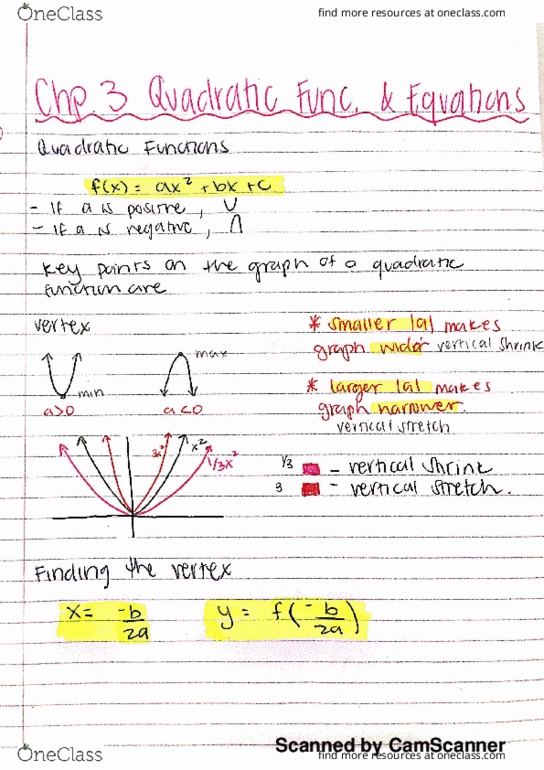 OneClass
find more resources at oneclass.com
Chp. 3 Quadratic Func. & Equations
Quadratic Functions
f(x) = ax² + bx + c
- If a is positive, ∪
- If a is negative, ∩
Key points on the graph of a quadratic
function are
vertex
* smaller |a| makes
graph wider vertical shrink
max
min
a>0
a<0
* larger |a| makes
graph narrower.
vertical stretch
3x²
x²
1/3x²
1/3 - vertical shrink
3 - vertical stretch.
Finding the vertex
x = -b/2a
y = f(-b/2a)
Scanned by CamScanner
OneClass
find more resources at oneclass.com